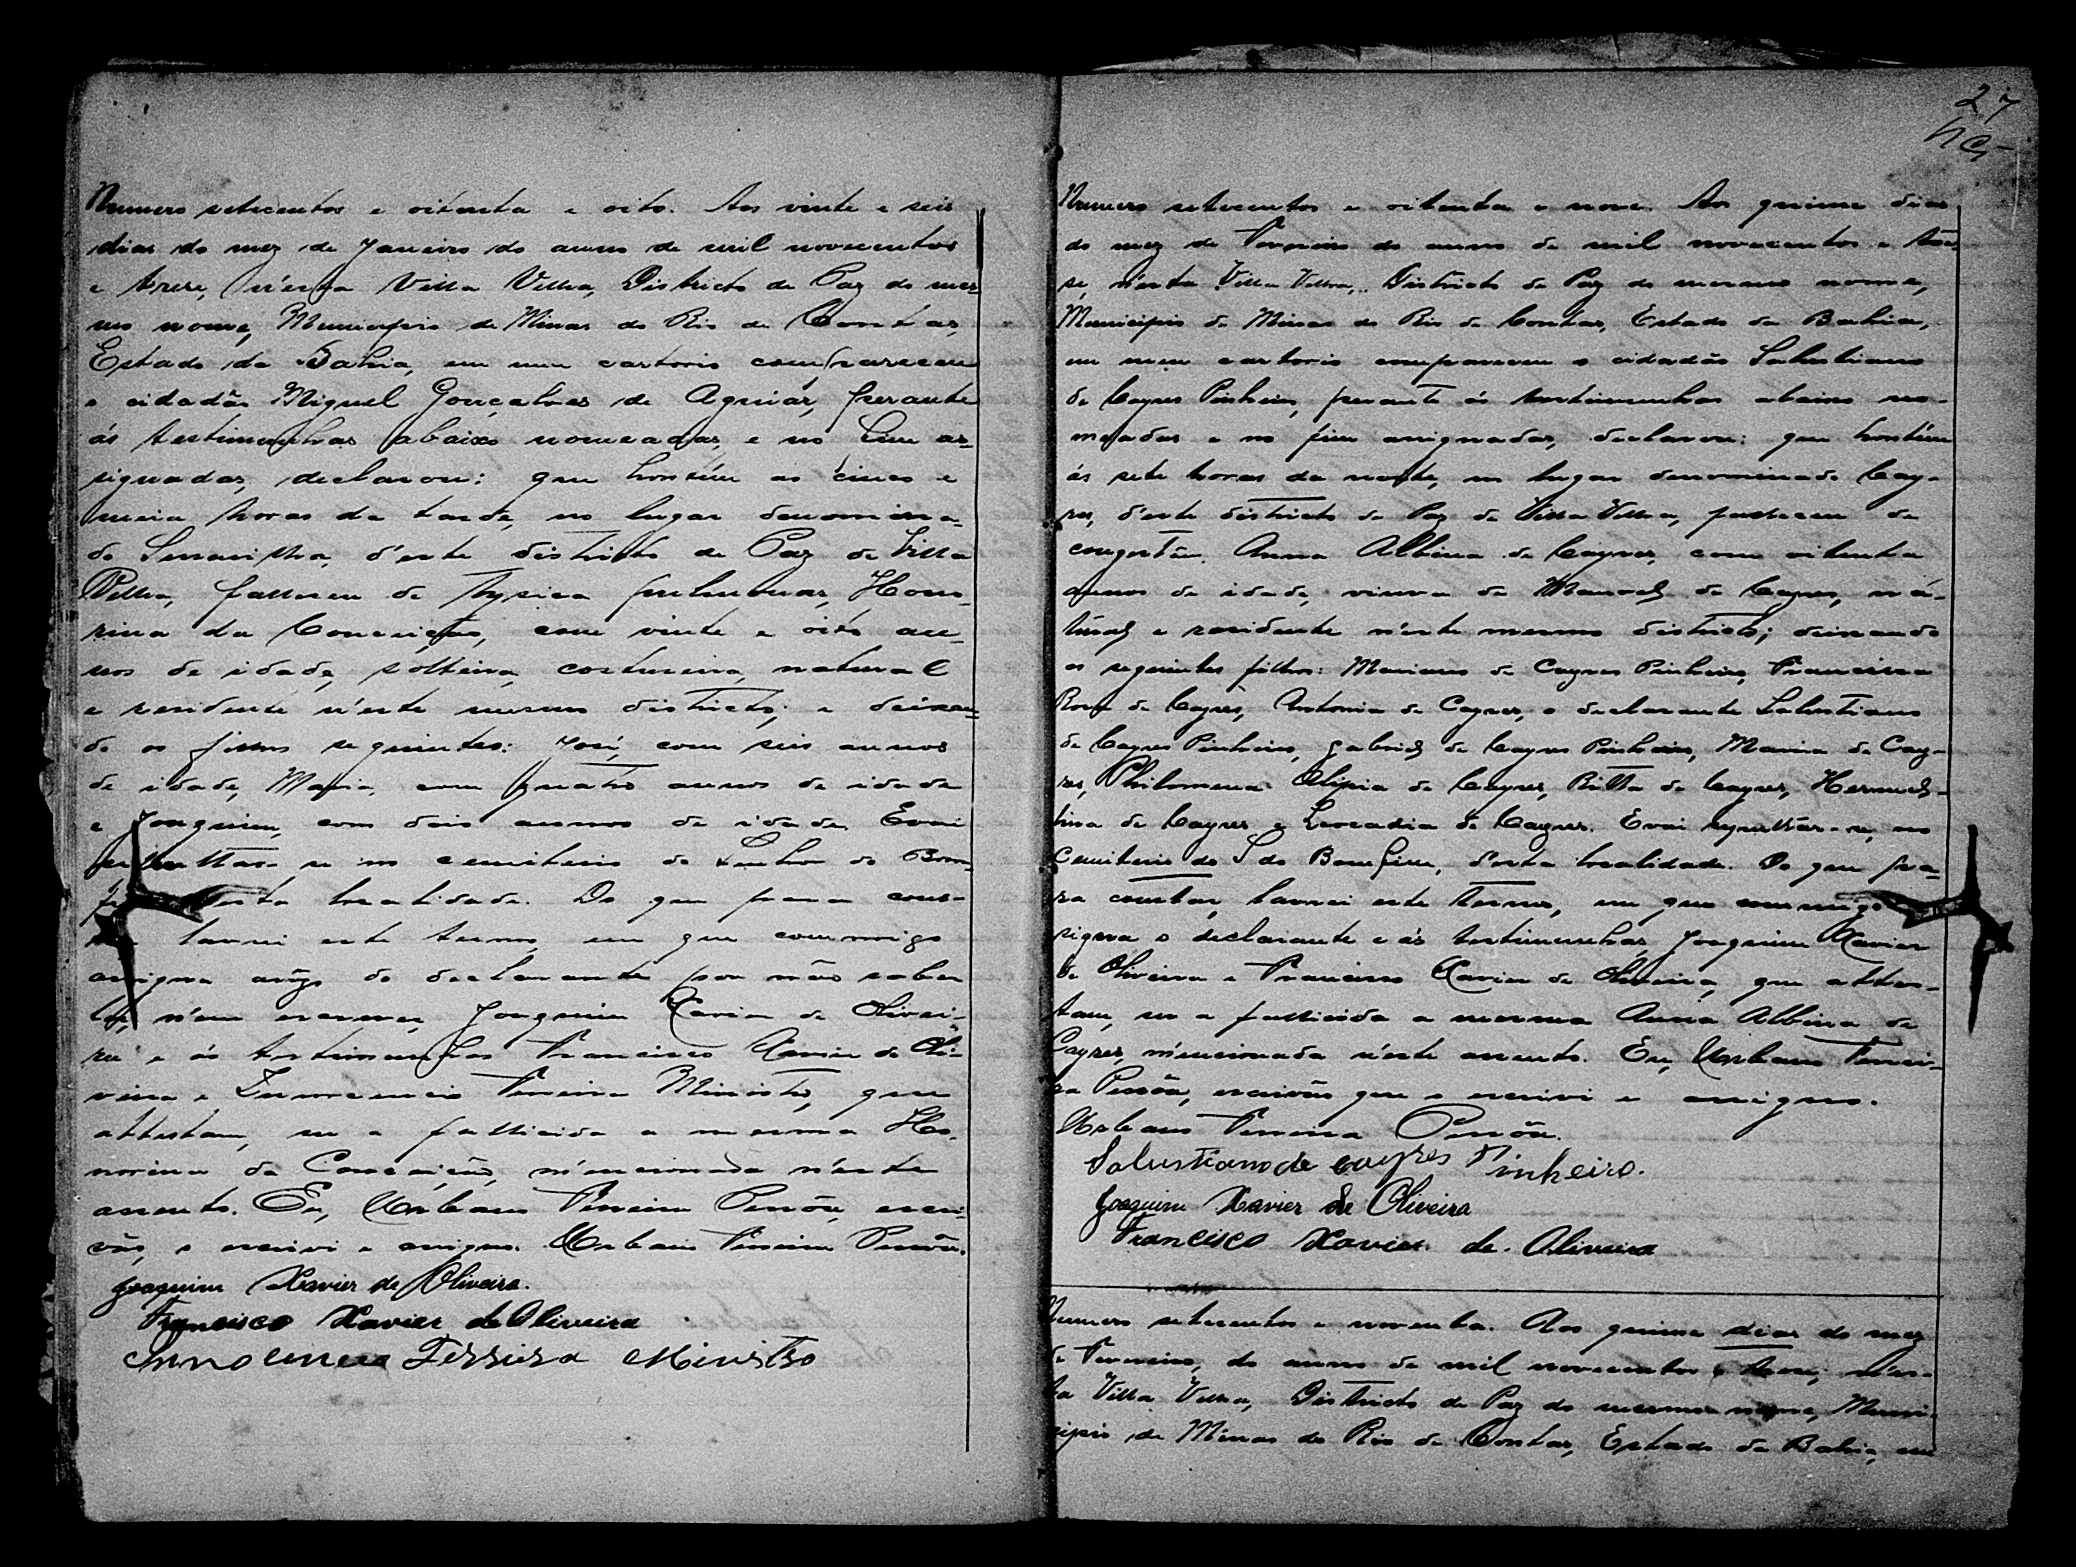 Numero setecentos e oitenta e oito. Aos vinte e seis
dias do mez de Janeiro do anno de mil novecentos
e treze, n'esta Villa Velha, Districto de Paz do mes-
mo nome, Municipio de Minas do Rio de Contas,
Estado da Bahia, em meu cartorio compareceu
o cidadão Miguel Gonçalves de Aguiar, perante
ás testimunhas abaixo nomeadas, e no fim as-
signadas, declarou: que hontém as cinco e
meia horas da tarde, no lugar denomina-
do d'este districto de Paz de Villa
Velha, falleceu de thysica pulmonar, Hono-
rina da Conceição, com vinte e oito an-
nos de idade, solteira, costureira, natural
e residente n'este mesmo districto; e deixan-
do os filhos seguintes: José, com seis annos
de idade, Maria, com quatro annos de idade
e Joaquim, com dois annos de idade. Evai
sepultar-se no cemiterio do Senhor do Bom
localidade. Do que para cons-
lavrei este termo, em que commigo
assigna arôgo do declarante por não saber
ler, n'em escrever, Joaquim Xavier de Olivei-
ra e ás testimunhas Francisco Xavier de Oli-
veira e Innocencio Ferreira Ministro, que
attestam, ser a fallicida a mesma Ho-
norina da Conceição, mencionada n'este
assento. Eu, Urbano Ferreira Pessôa, escri-
vão, o escrivi e assigno. Urbano Ferreira Pessôa.
Joaquim Xavier de Oliveira.
Francisco Xavier de Oliveira
Innocencio Ferreira Ministro
27
Numero setecentos e oitenta e nove. Aos quinse dias
do mez de Fevereiro do anno de mil novecentos e tre-
se, n'esta Villa Velha, Districto de Paz do mesmo nome,
Municipio de Minas do Rio de Contas, Estado da Bahia,
em meu cartorio compareceu o cidadão Salustiano
de Cayres Pinheiro, perante ás testimunhas abaixo no-
meadas e no fim assignadas, declarou: que hontém
ás sete horas da noite, no lugar denominado Cay-
res, d'este districto de Paz de Villa Velha, falleceu de
congestão Anna Albina de Cayres, com oitenta
annos de idade, viuva de Manoel de Cayres, na-
tural e residente n'este mesmo districto; deixando
os seguintes filhos: Mariano de Cayres Pinheiro, Francisca
Rosa de Cayres, Antonia de Cayres, o declarante Salustiano
de Cayres Pinheiro, Gabriel de Cayres Pinheiro, Maria de Cay-
res, Philomena Olipia de Cayres, Ritta de Cayres, Hermel-
tina de Cayres e Leocadia de Cayres. Evai sepultar-se, no
Cemiterio do S. do Bomfim, d'esta localidade. Do que pa-
ra constar, lavrei este termo, em que commigo
signa o declarante e ás testimunhas, Joaquim Xavier
de Oliveira e Francisco Xavier de Oliveira, que attes-
tam, ser a fallicida a mesma Anna Albina de
Cayres, mencionada n'este assento. Eu, Urbano Ferrei-
ra Pessôa, escrivão que o escrivi e assigno.
Urbano Ferreira Pessôa.
Salustiano de cayres Pinheiro.
Joaquim Xavier de Oliveira
Francisco Xavier de Oliveira
Numero setecentos e noventa. Aos quinse dias do mez
de Fevereiro, do anno de mil novecentos e treze, n'es-
ta Villa Velha, Districto de Paz do mesmo nome, Muni-
cipio de Minas do Rio de Contas, Estado da Bahia, em